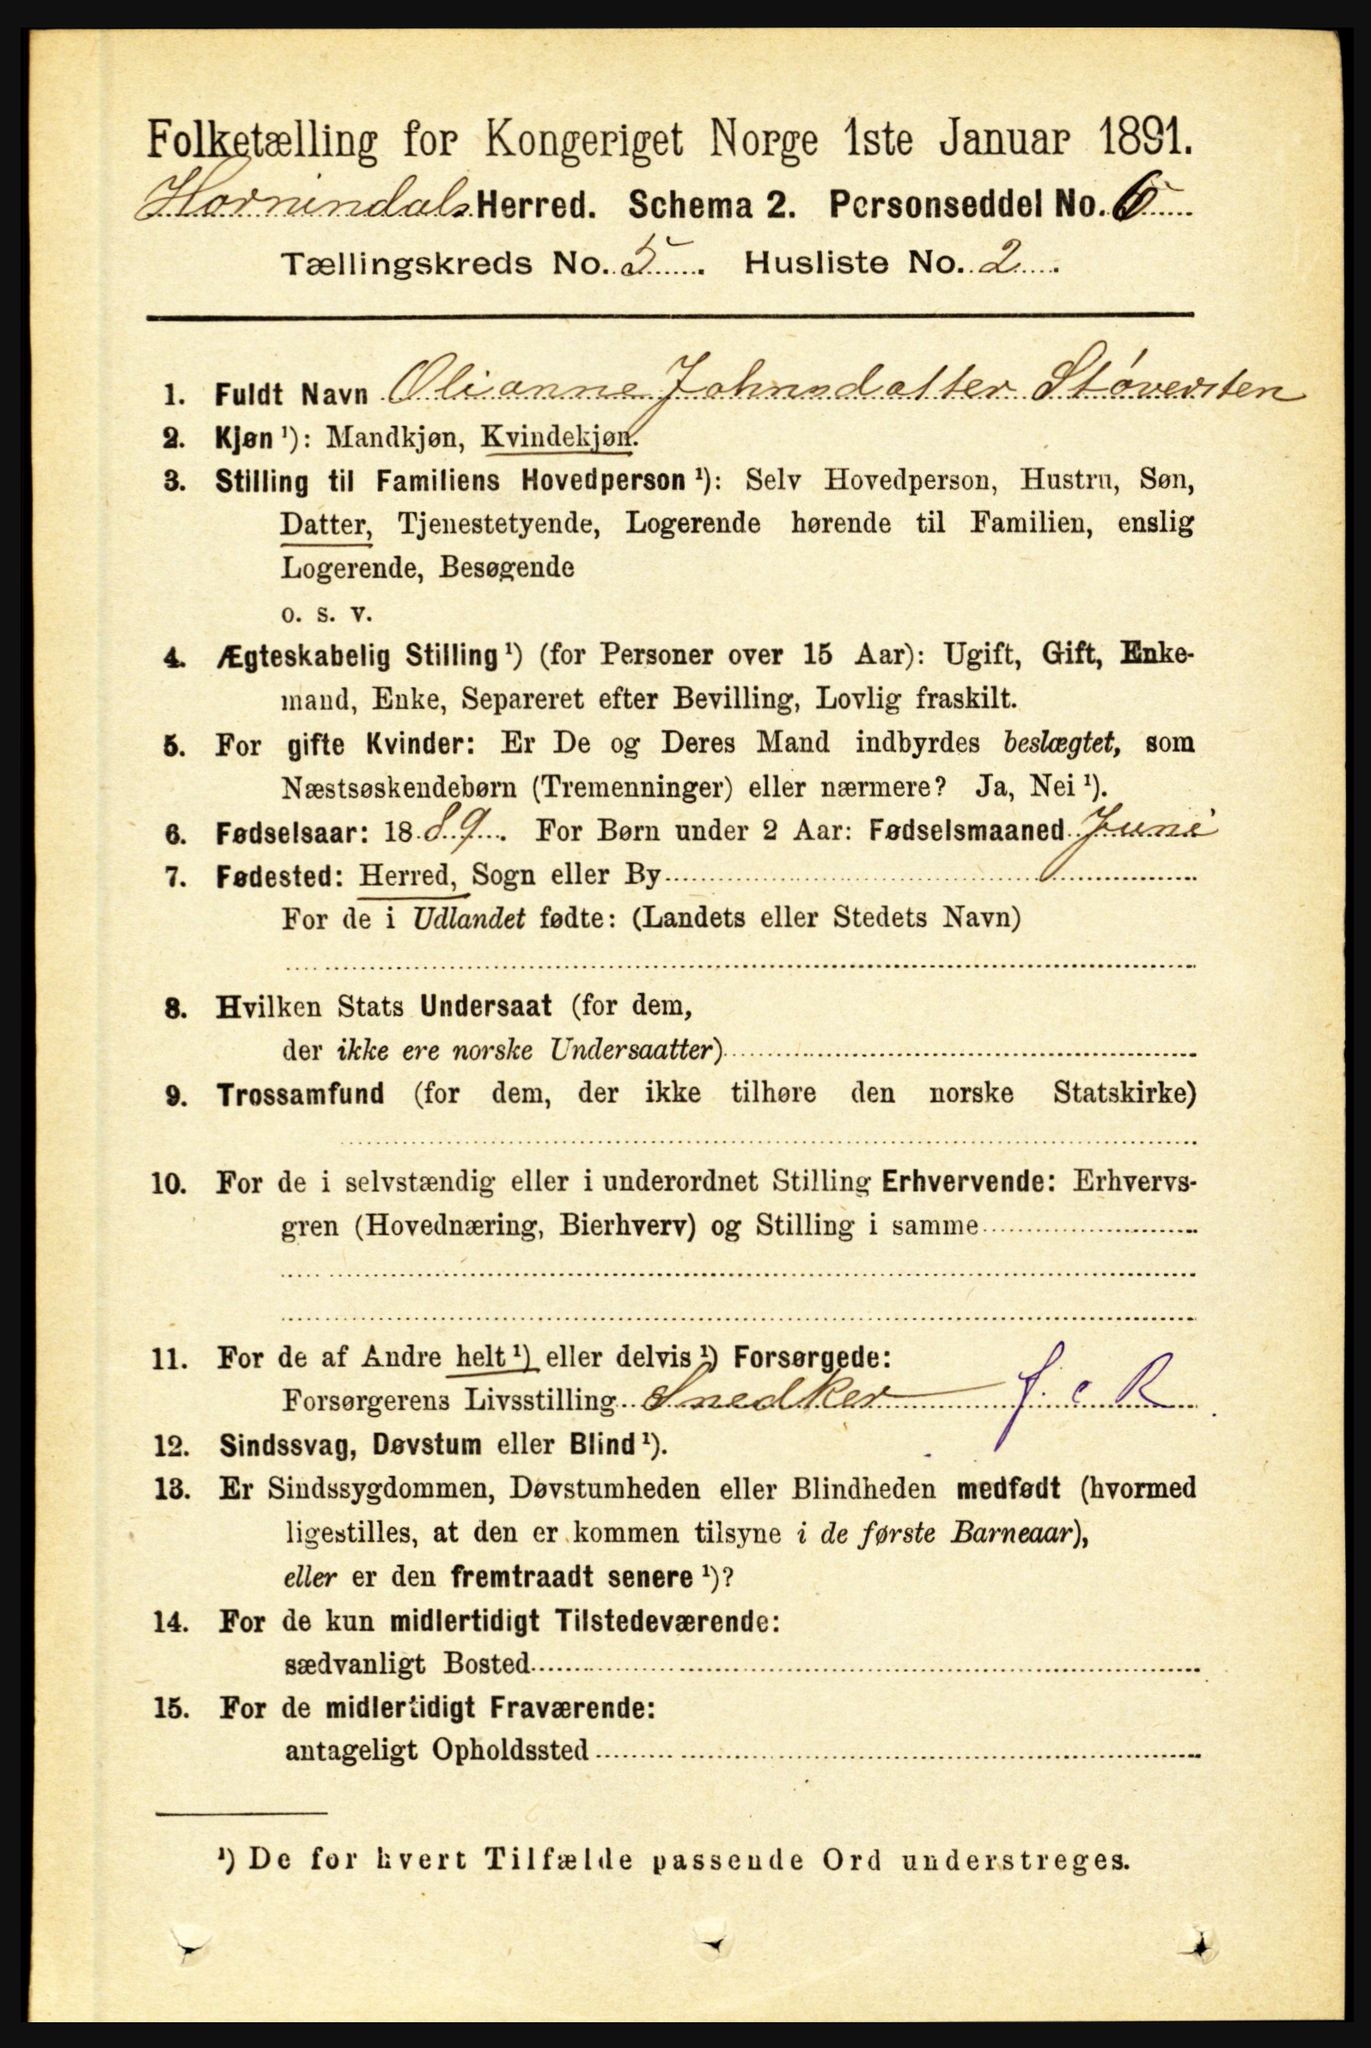 Folketælling for Kongeriget Norge 1ste Januar 1891.
Hornindals Herred. Schema 2. Personseddel No. 6
Tællingskreds No. 5. Husliste No. 2.
1. Fuldt Navn Olianne Johnsdatter Støversten
2. Kjøn ¹): Mandkjøn, Kvindekjøn.
3. Stilling til Familiens Hovedperson ¹): Selv Hovedperson, Hustru, Søn,
Datter, Tjenestetyende, Logerende hørende til Familien, enslig
Logerende, Besøgende
o. s. v.
4. Ægteskabelig Stilling ¹) (for Personer over 15 Aar): Ugift, Gift, Enke-
mand, Enke, Separeret efter Bevilling, Lovlig fraskilt.
5. For gifte Kvinder: Er De og Deres Mand indbyrdes beslægtet, som
Næstsøskendebørn (Tremenninger) eller nærmere? Ja, Nei ¹).
6. Fødselsaar: 1889. For Børn under 2 Aar: Fødselsmaaned Juni
7. Fødested: Herred, Sogn eller By
For de i Udlandet fødte: (Landets eller Stedets Navn)
8. Hvilken Stats Undersaat (for dem,
der ikke ere norske Undersaatter)
9. Trossamfund (for dem, der ikke tilhøre den norske Statskirke)
10. For de i selvstændig eller i underordnet Stilling Erhvervende: Erhvervs-
gren (Hovednæring, Bierhverv) og Stilling i samme
11. For de af Andre helt ¹) eller delvis ¹) Forsørgede:
Forsørgerens Livsstilling Snedker f. c R
12. Sindssvag, Døvstum eller Blind ¹).
13. Er Sindssygdommen, Døvstumheden eller Blindheden medfødt (hvormed
ligestilles, at den er kommen tilsyne i de første Barneaar),
eller er den fremtraadt senere ¹)?
14. For de kun midlertidigt Tilstedeværende:
sædvanligt Bosted
15. For de midlertidigt Fraværende:
antageligt Opholdssted
¹) De for hvert Tilfælde passende Ord understreges.